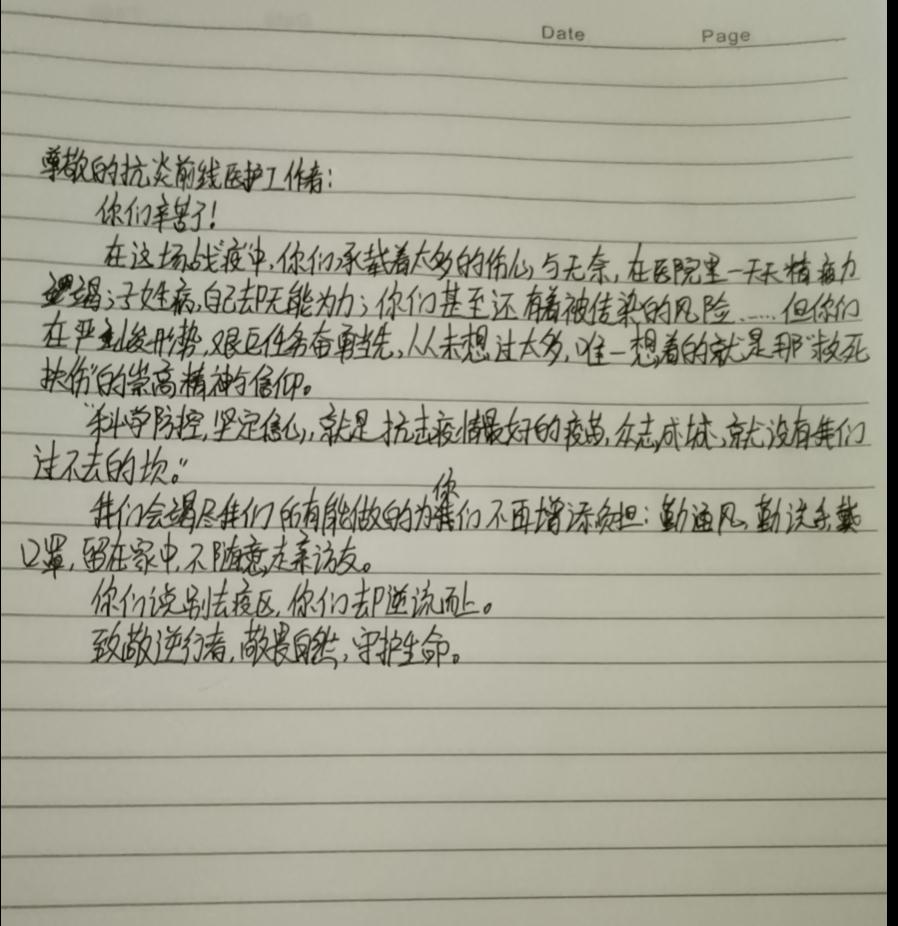 Date Page
尊敬的抗炎前线医护工作者：
你们辛苦了！
在这场战“疫”中，你们承载着太多的伤心与无奈，在医院里一天天精疲力
竭；子女生病，自己却无能为力；你们甚至还有着被传染的风险……但你们
在严峻形势，艰巨任务奋勇当先，从未想过太多，唯一想着的就是那“救死
扶伤”的崇高精神与信仰。
“科学防控，坚定信心，就是抗击疫情最好的疫苗，众志成城，就没有我们
过不去的坎。”
我们会竭尽我们所有能做的为你们不再增添负担：勤通风，勤洗手戴
口罩，留在家中，不随意走亲访友。
你们说别去疫区，你们却逆流而上。
致敬逆行者，敬畏自然，守护生命。